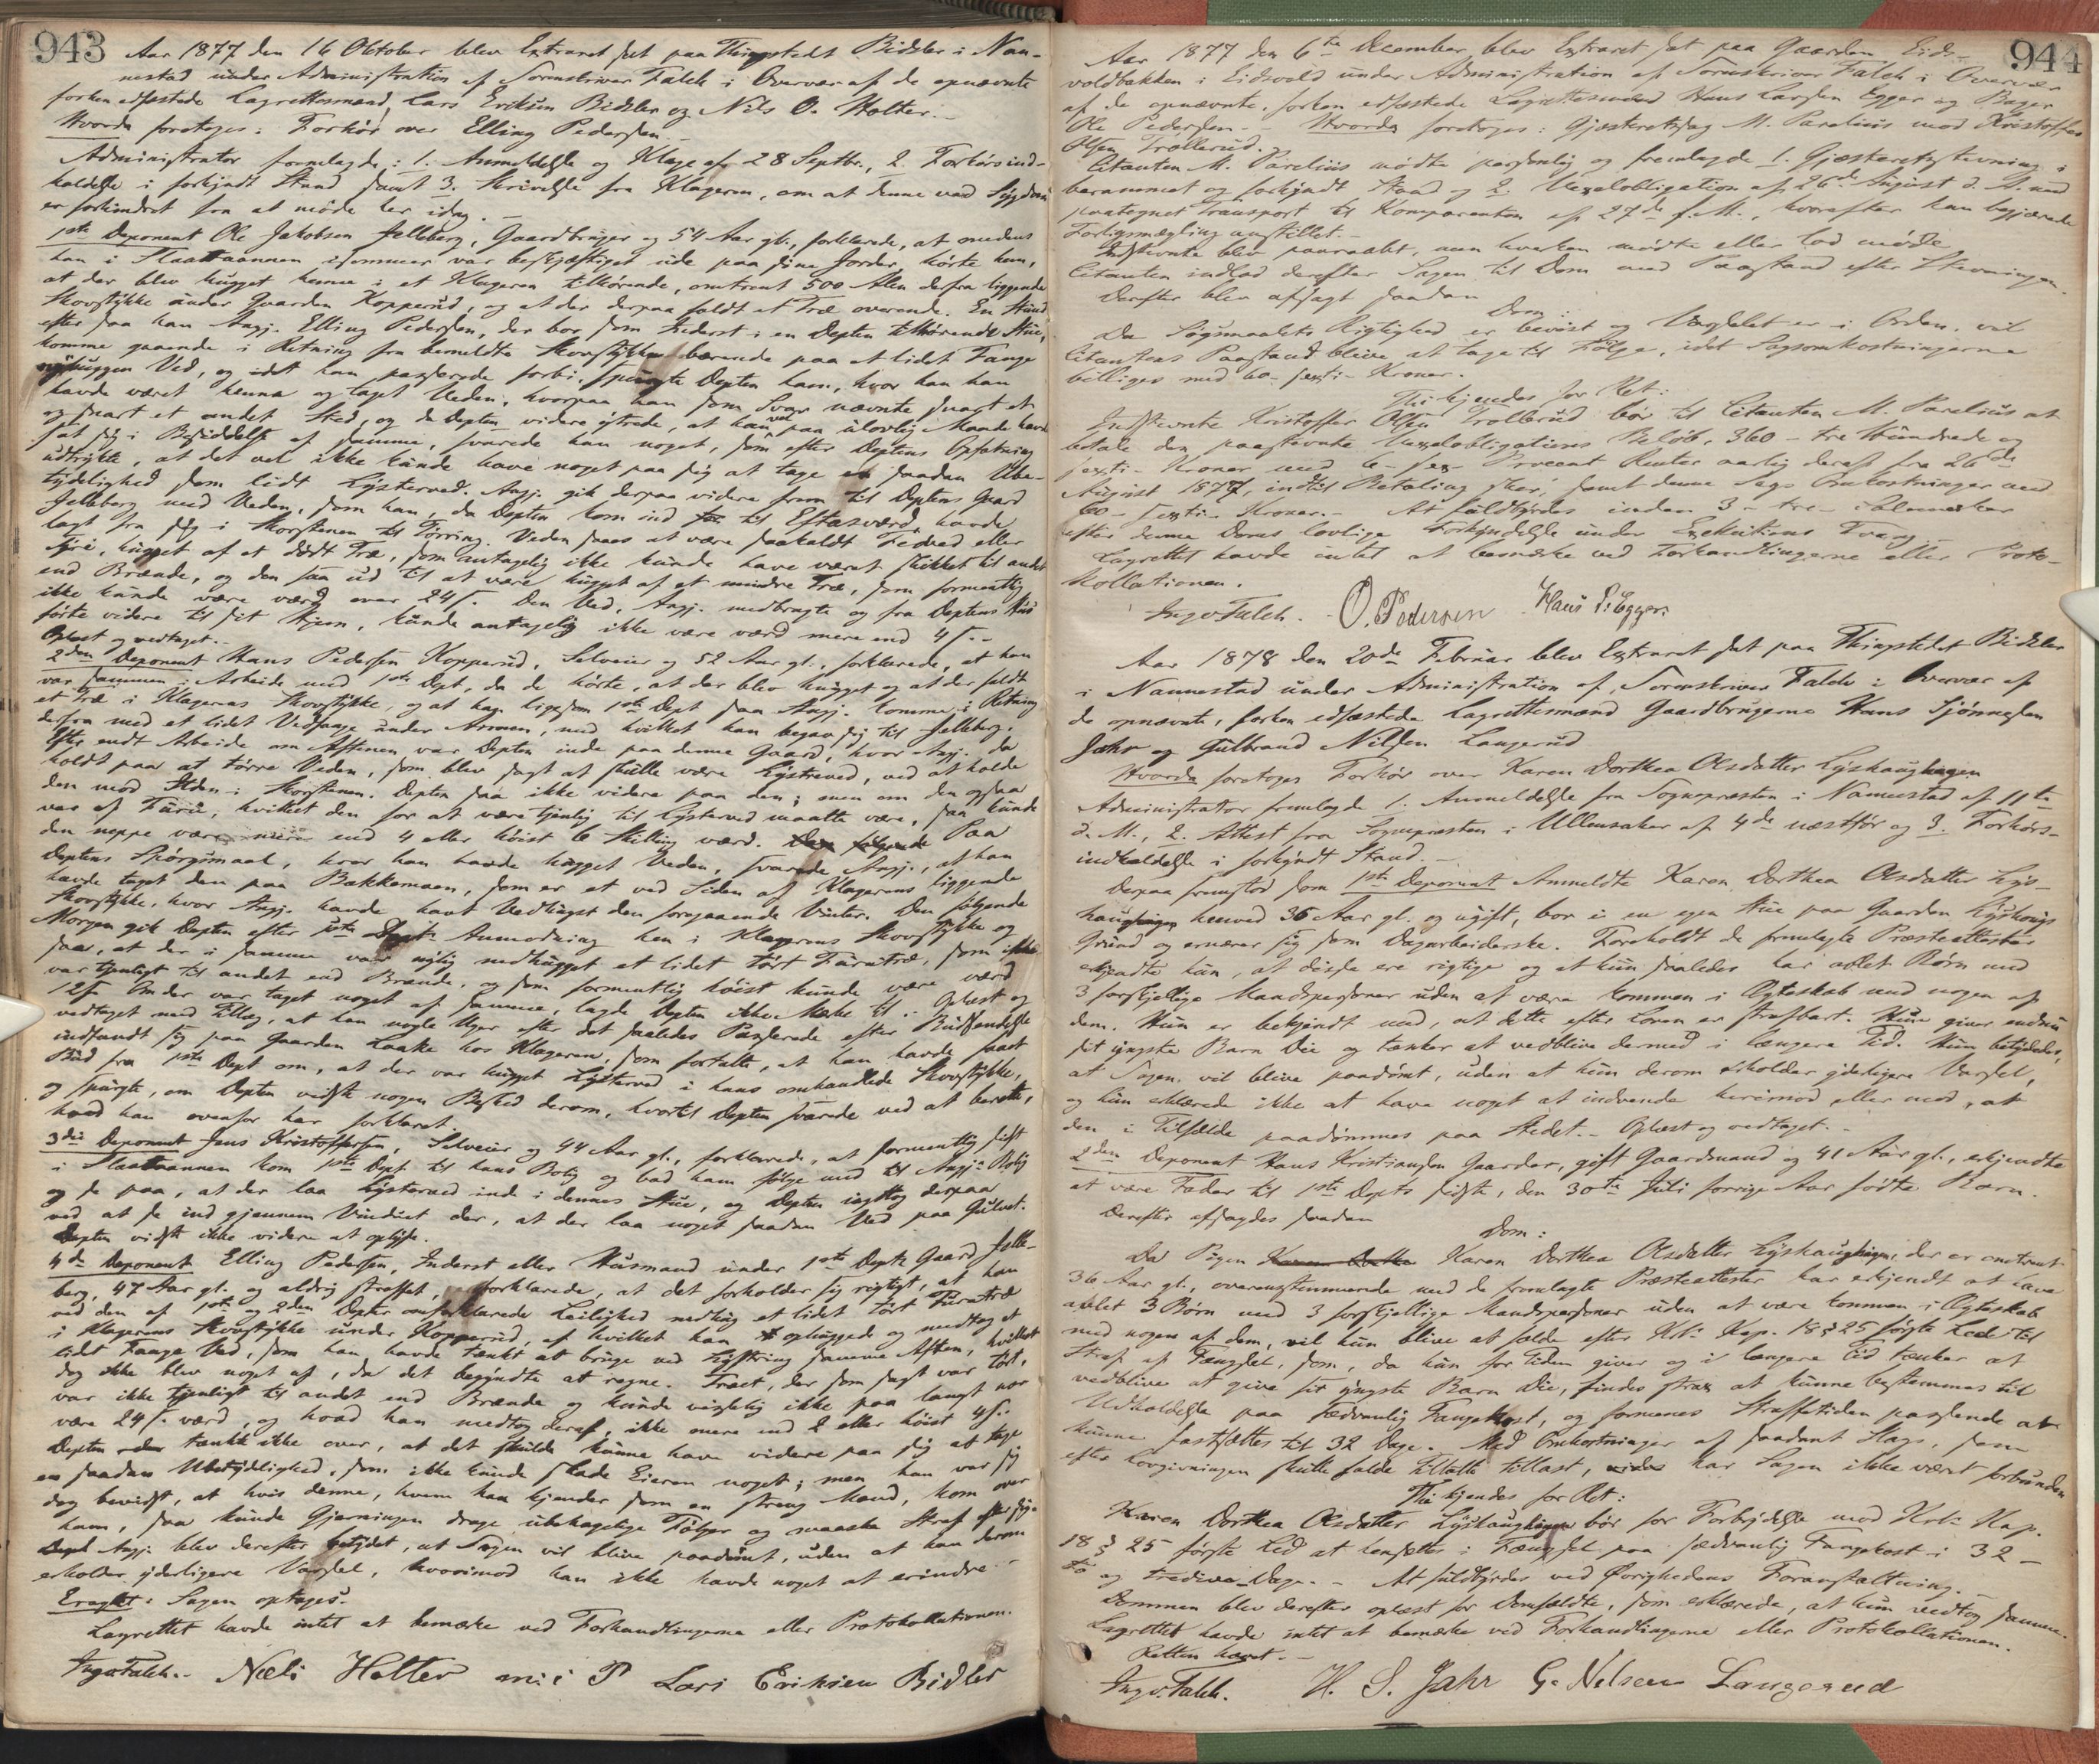 943
Aar 1877 den 16 Oktober blev Extraret sat paa Thingstedet Bidsler i Nan-
nestad under Administration af Sorenskriver Falch i Overvær af de opnævnte
forhen edfæstede Lagrettesmænd, Lars Eriksen Bidsler og Nils O. Holter.-
Hvorda foretoges: Forhør over Elling Pedersen.-
Administrator fremlagde: 1. Anmeldelse og Klage af 28 Septbr., 2. Forhørsind-
kaldelse i forkyndt Stand samt 3. Skrivelse fra Klageren, om at denne ved Sygdom
er forhindret fra at møde her idag.-
1ste Deponent Ole Jakobsen Jelleberg, Gaardbruger og 54 Aar gl., forklarede, at medens
han i Slaattaannen isommer var beskjæftiget ude paa sine Jorder, hørte han,
at der blev hugget henne i et Klageren tilhørende, omtrent 500 Alen derfra liggende
Skovstykke under Gaarden Kopperud, og at der derpaa faldt et Træ overende. En Stund
efter saa han Angj. Elling Pedersen, der bor som Inderst i en Depten tilhørende Stue,
komme gaaende i Retning fra bemeldte Skovstykke bærende paa et lidet Fange
nyhuggen Ved, og idet han passerede forbi, spurgte Depten ham, hvor han han
havde været henne og taget Veden, hvorpaa han som Svar nævnte snart et
og snart et andet Sted, og da Depten videre ytrede, at han var paa ulovlig Maade havde
sat sig i Besiddelse af samme, svarede han noget, som efter Deptens Opfatning
udtrykte, at det vel ikke kunde have noget paa sig at tage en saadan Ube-
tydelighed som lidt Lysterved. Angj. gik derpaa videre frem til Deptens Gaard
Jelleberg med Veden, som han, da Depten kom ind til Eftasværd, havde
lagt fra sig i Skorstenen til Tørring. Veden saaes at være saakaldt Fedved eller
Tyri, hugget af et dødt Træ, som antagelig ikke kunde have været skikket til andet
end Brænde, og den saa ud til at være hugget af et mindre Træ, som formentlig
ikke kunde være værd over 24 s. Den Ved, Angj. medbragte og fra Deptens Hus
førte videre til sit Hjem, kunde antagelig ikke være værd mere end 4 s.-
Oplæst og vedtaget.-
2den Deponent Hans Pedersen Kopperud, Selveier og 52 Aar gl., forklarede, at han
var sammen i Arbeide med 1ste Dept, da de hørte, at der blev hugget og at der faldt
et Træ i Klagerens Skovstykke, og at han ligesom 1ste Dept saa Angj. komme i Retning
derfra med et lidet Vedfange under Armen, med hvilket han begav sig til Jelleberg.
Efter endt Arbeide om Aftenen var Depten inde paa denne Gaard, hvor Angj. da
holdt paa at tørre Veden, som blev sagt at skulle være Lysterved, ved at holde
den mod Ilden i Skorstenen. Depten saa ikke videre paa den; men om den ogsaa
var af Furu, hvilket den for at være tjenlig til Lysterved maatte være, saa kunde
den neppe være mere end 4 eller høist 6 Skilling værd. Den følgende Paa
Deptens Spørgsmaal, hvor han havde hugget Veden, svarede Angj., at han
havde taget den paa Bakkemoen, som er et ved Siden af Klagerens liggende
Skovstykke, hvor Angj. havde havt Vedhugst den foregaaende Vinter. Den følgende
Morgen gik Depten efter 1ste Depts Anmodning hen i Klagerens Skovstykke og
saa, at der i samme var nylig nedhugget et lidet tørt Furutræ, som ikke
var tjenligt til andet end Brænde, og som formentlig høist kunde være værd
12 s. Om der var taget noget af samme, lagde Depten ikke Mærke til.- Oplæst og
vedtaget med Tillæg, at han nogle Uger efter det saaledes Passerede efter Budsendelse
indfandt sig paa Gaarden Laake hos Klageren, som fortalte, at han havde faaet
Bud fra 1ste Dept om, at der var hugget Lysterved i hans omhandlede Skovstykke,
og spurgte, om Depten vidste nogen Besked derom, hvortil Depten svarede ved at berette,
hvad han ovenfor har forklaret.
3die Deponent Jens Kristoffersen, Selveier og 44 Aar gl., forklarede, at formentlig sidst
i Slaattaannen kom 1ste Dept til hans Bolig og bad ham følge med til Angj:s Bolig
og se paa, at der laa Lysterved inde i dennes Stue, og Depten iagttog derpaa
ved at se ind gjennem Vinduet der, at der laa noget saadan Ved paa Gulvet.
Depten vidste ikke videre at oplyse.
4de Deponent Elling Pedersen, Inderst eller Husmand under 1ste Depts Gaard Jelle-
berg, 47 Aar gl. og aldrig straffet, forklarede, at det forholder sig rigtigt, at han
ved den af 1ste og 2den Depter omforklarede Leilighed nedhug et lidet tørt Furutræ
i Klagerens Skovstykke under Kopperud, af hvilket han ophuggede og medtog et
lidet Fange Ved, som han havde tænkt at bruge ved Lystring samme Aften, hvilket
dog ikke blev noget af, da det begyndte at regne. Træet, der som sagt var tørt,
var ikke tjenligt til andet end Brænde og kunde visselig ikke paa langt nær
være 24 s. værd, og hvad han medtog deraf, ikke mere end 2 eller høist 4 s.
Depten tænkte ikke over, at det skulde kunne have videre paa sig at tage
en saadan Ubetydelighed, som ikke kunde skade Eieren noget; men han var sig
dog bevidst, at hvis denne, hvem han kjender som en streng Mand, kom over
ham, saa kunde Gjerningen drage ubehagelige Følger og maaske Straf efter sig.
Dept Angj. blev derefter betydet, at Sagen vil blive paadømt, uden at han derom
erholder yderligere Varsel, hvorimod han ikke havde noget at erindre.-
Eragtet: Sagen optages.
Lagrettet havde intet at bemærke ved Forhandlingerne eller Protokollationen.
Ingv Falch.- Næls Holter m. i P Lars Eriksen Bidler
944
Aar 1877 den 6te December blev Extraret sat paa Gaarden Eids-
voldbakken i Eidsvold under Administration af Sorenskriver Falch i Overvær
af de opnævnte, forhen edfæstede Lagrettesmænd Hans Larsen Egger og Bager
Ole Pedersen.- Hvorda foretoges: Gjæsteretssag M. Parelius mod Kristoffer
Olsen Trollerud.
Citanten M. Parelius mødte personlig og fremlagde 1. Gjæsteretsstevning i
berammet og forkyndt Stand og 2. Vexelobligation af 26de August d. A. med
paategnet Transport til Komparenten af 27de s. M., hvorefter han begjærede
Forligsmægling anstillet.-
Indstevnte blev paaraabt, men hverken mødte eller lod møde.
Citanten indlod derefter Sagen til Dom med Paastand efter Stevningen.
Derefter blev afsagt saadan
Dom:
Da Søgsmaalets Rigtighed er bevist og Varslet er i Orden, vil
Citantens Paastand blive at tage til Følge, idet Sagsomkostningerne
billiges med 60 - sexti - Kroner.
Thi kjendes for Ret:
Indstevnte Kristoffer Olsen Trollerud bør til Citanten M. Parelius at
betale den paastevnte Vexelobligations Beløb, 360 - tre Hundrede og
sexti - Kroner med 6 - sex - Procent Renter aarlig deraf fra 26de
August 1877, indtil Betaling sker, samt denne Sags Omkostninger med
60 - sexti - Kroner.- At fuldbyrdes inden 3 - tre - Solemærker
efter denne Doms lovlige Forkyndelse under Exekutions Tvang.
Lagrettet havde intet at bemærke ved Forhandlingerne eller Proto-
kollationen.
Ingv Falch. O. Pedersen Hans L. Egger.
Aar 1878 den 20de Februar blev Extraret sat paa Thingstedet Bidsler
i Nannestad under Administration af Sorenskriver Falch i Overvær af
de opnævnte, forhen edfæstede Lagrettesmænd Gaardbrugerne Hans Sjønnesen
Jahr og Gulbrand Nilsen Langerud
Hvorda foretoges Forhør over Karen Dorthea Olsdatter Lyshaughagen
Administrator fremlagde 1. Anmeldelse fra Sognepræsten i Nannestad af 11te
d. M., 2. Attest fra Sognepræsten i Ullensaker af 4de næstfør og 3. Forhørs-
indkaldelse i forkyndt Stand.-
Derpaa fremstod som 1ste Deponent Anmeldte Karen Dorthea Olsdatter Lys-
haughagen henved 36 Aar gl. og ugift, bor i en egen Stue paa Gaarden Lyshaugs
Grund og ernærer sig som Dagarbeiderske. Foreholdt de fremlagte Præsteattester
erkjendte hun, at disse ere rigtige og at hun saaledes har avlet Børn med
3 forskjellige Mandspersoner uden at være kommen i Ægteskab med nogen af
dem. Hun er bekjendt med, at dette efter Loven er strafbart. Hun giver endnu
sit yngste Barn Die og tænker at vedblive dermed i længere Tid. Hun betydedes,
at Sagen vil blive paadømt, uden at hun derom erholder yderligere Varsel,
og hun erklærede ikke at have noget at indvende herimod eller mod, at
den i Tilfælde paadømmes paa Stedet.- Oplæst og vedtaget.-
2den Deponent Hans Kristiansen Gaarder, gift Gaardmand og 41 Aar gl., erkjendte
at være Fader til 1ste Depts sidste, den 30te Juli forrige Aar fødte Barn.
Derefter afsagdes saadan
Dom:
Da Pigen Karen Dorthea Karen Dorthea Olsdatter Lyshaughagen, der er omtrent
36 Aar gl., overensstemmende med de fremlagte Præsteattester har erkjendt at have
avlet 3 Børn med 3 forskjellige Mandspersoner uden at være kommen i Ægteskab
med nogen af dem, vil hun blive at fælde efter Krl. Kap. 18 § 25 første Led til
Straf af Fængsel, som, da hun for Tiden giver og i længere Tid tænker at
vedblive at give sit yngste Barn Die, findes strax at kunne bestemmes til
Udholdelse paa sædvanlig Fangekost, og formenes Straffetiden passende at
kunne fastsættes til 32 Dage. Med Omkostninger af saadant Slags, som
efter Lovgivningen skulle falde Tiltalte tillast, har Sagen ikke været forbunden
Thi kjendes for Ret:
Karen Dorthea Olsdatter Lyshaughagen bør for Forbrydelse mod Krl. Kap.
18 § 25 første Led at hensættes i Fængsel paa sædvanlig Fangekost i 32 -
to og tredive - Dage.- At fuldbyrdes ved Øvrighedens Foranstaltning.-
Dommen blev derefter oplæst for Domfældte, som erklærede, at hun vedtog samme.
Lagrettet havde intet at bemærke ved Forhandlingerne eller Protokollationen.
Retten hævet.-
Ingv. Falch. H. S. Jahr G. Nelsen Langerud